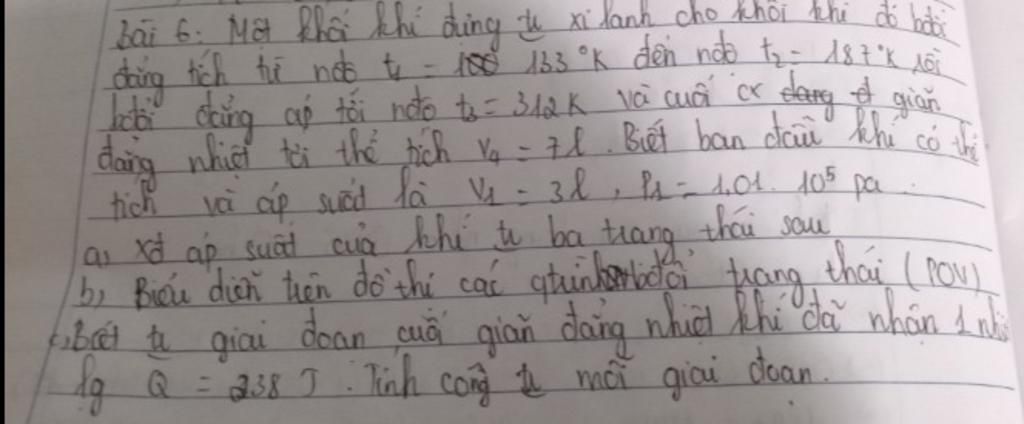 bài 6: Một khối khí đừng tr xi lanh cho khối khí đó bđổi
đẳng tích từ ndo t1 = 133 °K đến ndo t2 = 187 °K rồi
bđổi đẳng áp tới ndo t3 = 312 K và cuối cx giãn
đẳng nhiệt tới thể tích V4 = 7l. Biết ban đầu khí có thể
tích và áp suất là V1 = 3l, P1 = 1,01. 10⁵ pa.
a, xđ áp suất của khí tr ba trang thái sau
b, Biểu diễn trên đồ thị các qtrình bđổi trang thái (POV)
c, biết tr giai đoan cuối giãn đẳng nhiệt khí đã nhận 1 nh
lg Q = 238 J. Tính công tr mỗi giai đoan.